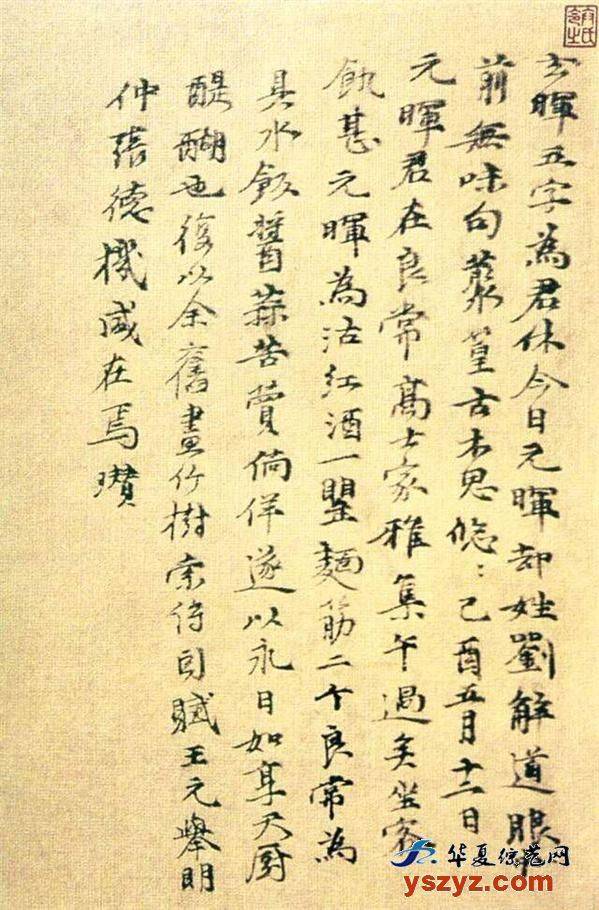 玄暉五字為君休今日元暉却姓劉解道眼
前無味句叢篁古木思悠〻己酉五月十二日
元暉君在良常高士家雅集午過矣坐客
飢甚元暉為沽紅酒一罌麵筋二个良常為
具水飯醬蒜苦蕒徜徉遂以永日如享天厨
醍醐也復以余舊畫竹樹索詩因賦王元舉明
仲張德機咸在焉瓚
华夏综艺网
yszyz.com